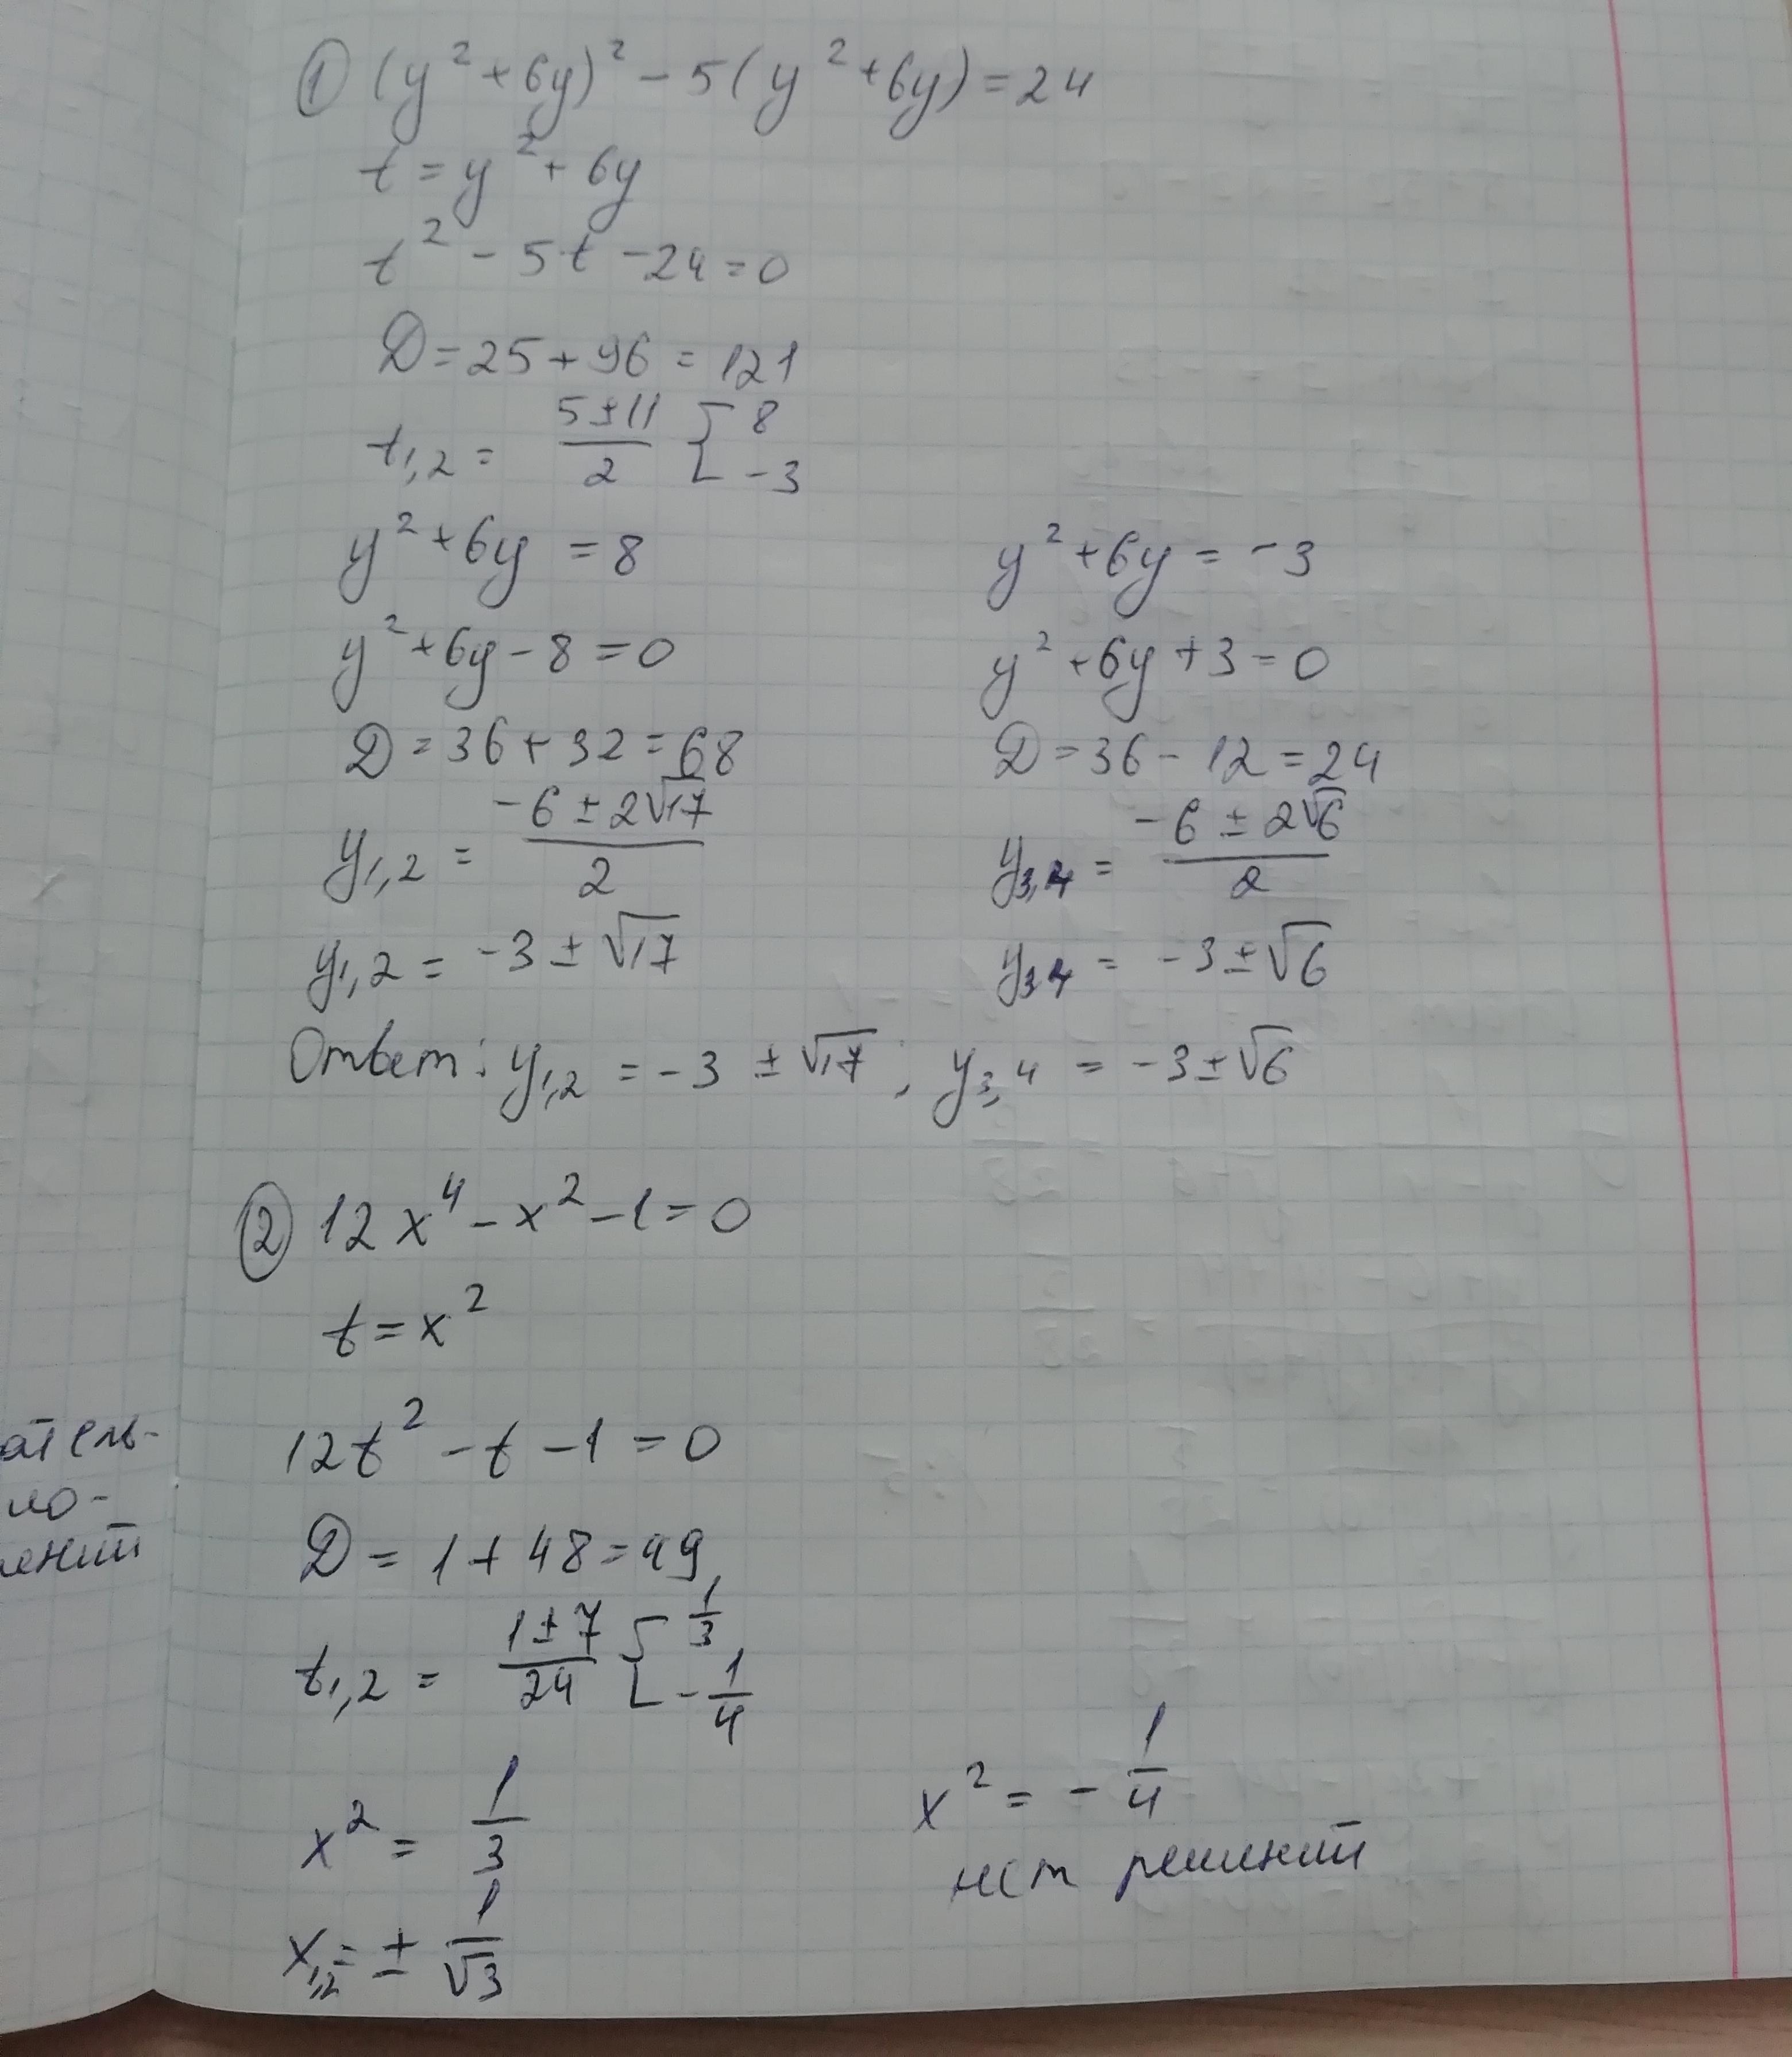 ① (y² + 6y)² - 5(y² + 6y) = 24
t = y² + 6y
t² - 5t - 24 = 0
D = 25 + 96 = 121
t₁,₂ = (5 ± 11)/2 [ 8
-3
y² + 6y = 8
y² + 6y - 8 = 0
D = 36 + 32 = 68
y₁,₂ = (-6 ± 2√17)/2
y₁,₂ = -3 ± √17
y² + 6y = -3
y² + 6y + 3 = 0
D = 36 - 12 = 24
y₃,₄ = (-6 ± 2√6)/2
y₃,₄ = -3 ± √6
Ответ: y₁,₂ = -3 ± √17 ; y₃,₄ = -3 ± √6
② 12x⁴ - x² - 1 = 0
t = x²
12t² - t - 1 = 0
D = 1 + 48 = 49
t₁,₂ = (1 ± 7)/24 [ 1/3
-1/4
x² = 1/3
x₁,₂ = ± 1/√3
x² = - 1/4
нет решений